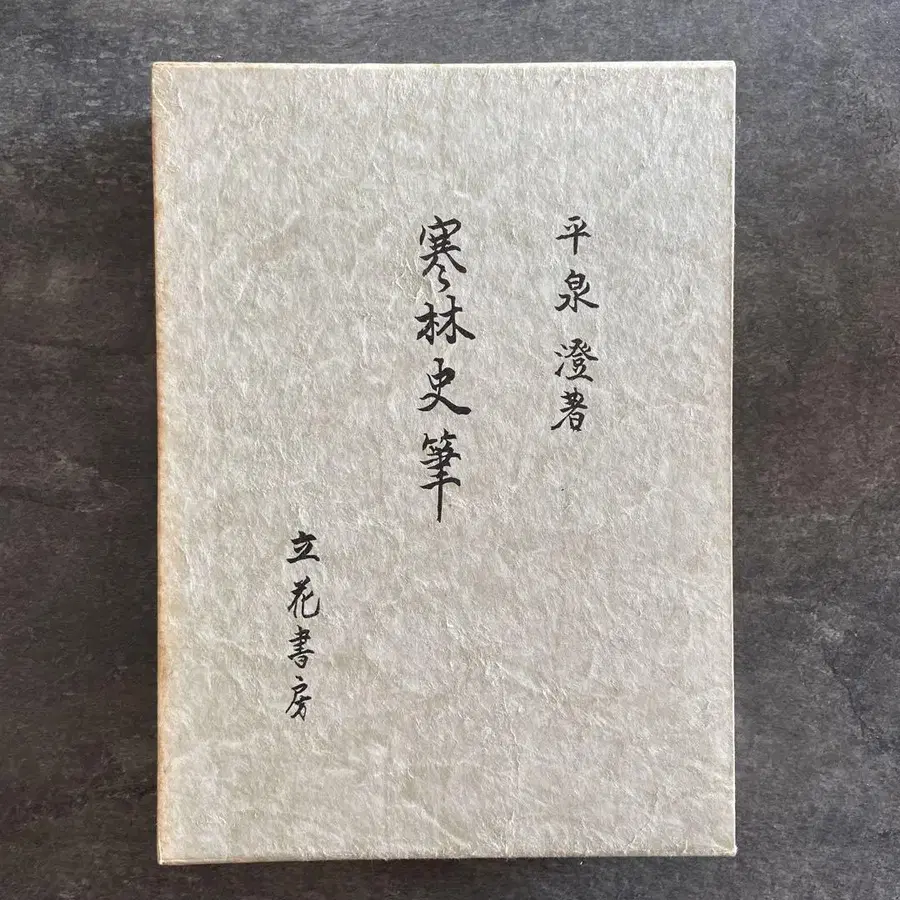 平泉 澄著
寒林史筆
立花書房